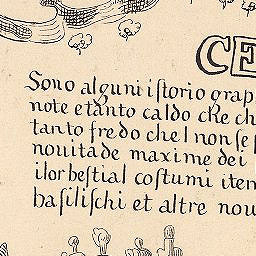 CE
Sono alguni istorio grap
note e tanto caldo che ch
tanto fredo che l non se p
nouitade maxime dei
ilor bestial costumi item
basilischi et altre nou